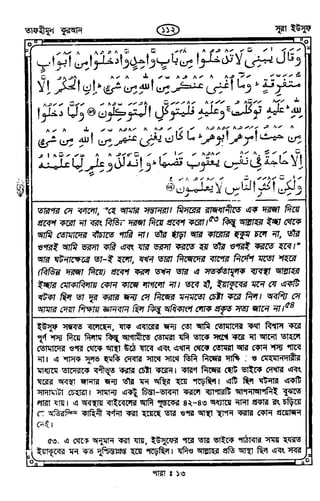 তাফহীমুল কুরআন
১১২
সূরা ইউসুফ
وَقَالَ يٰبَنِىَّ لَا تَدْخُلُوْا مِنْۢ بَابٍ وَّاحِدٍ وَّادْخُلُوْا مِنْ اَبْوَابٍ
مُّتَفَرِّقَةٍ ؕ وَمَاۤ اُغْنِىْ عَنْكُمْ مِّنَ اللّٰهِ مِنْ شَىْءٍ ؕ اِنِ الْحُكْمُ اِلَّا
لِلّٰهِ ؕ عَلَيْهِ تَوَكَّلْتُ ۚ وَعَلَيْهِ فَلْيَتَوَكَّلِ الْمُتَوَكِّلُوْنَ ﴿۶۷﴾ وَلَمَّا دَخَلُوْا
مِنْ حَيْثُ اَمَرَهُمْ اَبُوْهُمْ ؕ مَا كَانَ يُغْنِىْ عَنْهُمْ مِّنَ اللّٰهِ مِنْ شَىْءٍ
اِلَّا حَاجَةً فِىْ نَفْسِ يَعْقُوْبَ قَضٰىهَا ؕ وَاِنَّهٗ لَذُوْ عِلْمٍ لِّمَا عَلَّمْنٰهُ
وَلٰكِنَّ اَكْثَرَ النَّاسِ لَا يَعْلَمُوْنَ ﴿۶۸﴾
তারপর সে বললো, "হে আমার সন্তানরা! মিসরের রাজধানীতে এক দরজা দিয়ে
প্রবেশ করো না বরং বিভিন্ন দরজা দিয়ে প্রবেশ করো।৫৩ কিন্তু আল্লাহর ইচ্ছা থেকে
আমি তোমাদের বাঁচাতে পারি না। তাঁর ছাড়া আর কারোর হুকুম চলে না, তাঁর
ওপরই আমি ভরসা করি এবং যার ভরসা করতে হয় তাঁর ওপরই করতে হবে।"
আর ঘটনাক্ষেত্রে তা-ই হলো, যখন তারা নিজেদের বাপের নির্দেশ মতো শহরে
(বিভিন্ন দরজা দিয়ে) প্রবেশ করল তখন তার এ সতর্কতামূলক ব্যবস্থা আল্লাহর
ইচ্ছার মোকাবিলায় কোন কাজে লাগলো না। তবে হাঁ, ইয়াকূবের মনে যে একটি
খটকা ছিল তা দূর করার জন্য সে নিজের মনমতো চেষ্টা করে নিল। অবশ্যি সে
আমার দেয়া শিক্ষায় জ্ঞানবান ছিল কিন্তু অধিকাংশ লোক প্রকৃত সত্য জানে না।৫৪
ইউসুফ সম্ভবত বলেছেন, যাক এবারের জন্য তো আমি তোমাদের কথা বিশ্বাস করে
পূর্ণ শস্য দিয়ে দিলাম কিন্তু আগামীতে তোমরা যদি তাকে সংগে করে না আনো তাহলে
তোমাদের ওপর থেকে আস্থা উঠে যাবে এবং এখান থেকে তোমরা আর কোন শস্য পাবে
না। এ শাসক সুলভ হুমকি দেবার সাথে সাথে তিনি নিজের দাক্ষিণ্য ও মেহমানদারীর
মাধ্যমে তাদেরকে বশীভূত করার চেষ্টা করেন। কারণ নিজের ছোট ভাইকে দেখার এবং
ঘরের অবস্থা জানার জন্য তাঁর মন অস্থির হয়ে পড়েছিল। এটি ছিল ঘটনার একটি
সাদামাটা চেহারা। সামান্য একটু চিন্তা-ভাবনা করলে ব্যাপারটি আপনাআপনিই বুঝতে
পারা যায়। এ অবস্থায় বাইবেলের আদি পুস্তকের ৪২-৪৩ অধ্যায়ে নানা প্রকার রং চড়িয়ে
যে অতিরঞ্জিত কাহিনী বর্ণনা করা হয়েছে তার ওপর আস্থা স্থাপন করার কোন প্রয়োজন
নেই।
৫৩. এ থেকে অনুমান করা যায়, ইউসুফের পরে তার ভাইকে পাঠাবার সময় হযরত
ইয়াকূবের মন কত দুশ্চিন্তাগ্রস্ত হয়ে পড়েছিল। যদিও আল্লাহর প্রতি আস্থা ছিল এবং সবর
পারা : ১৩